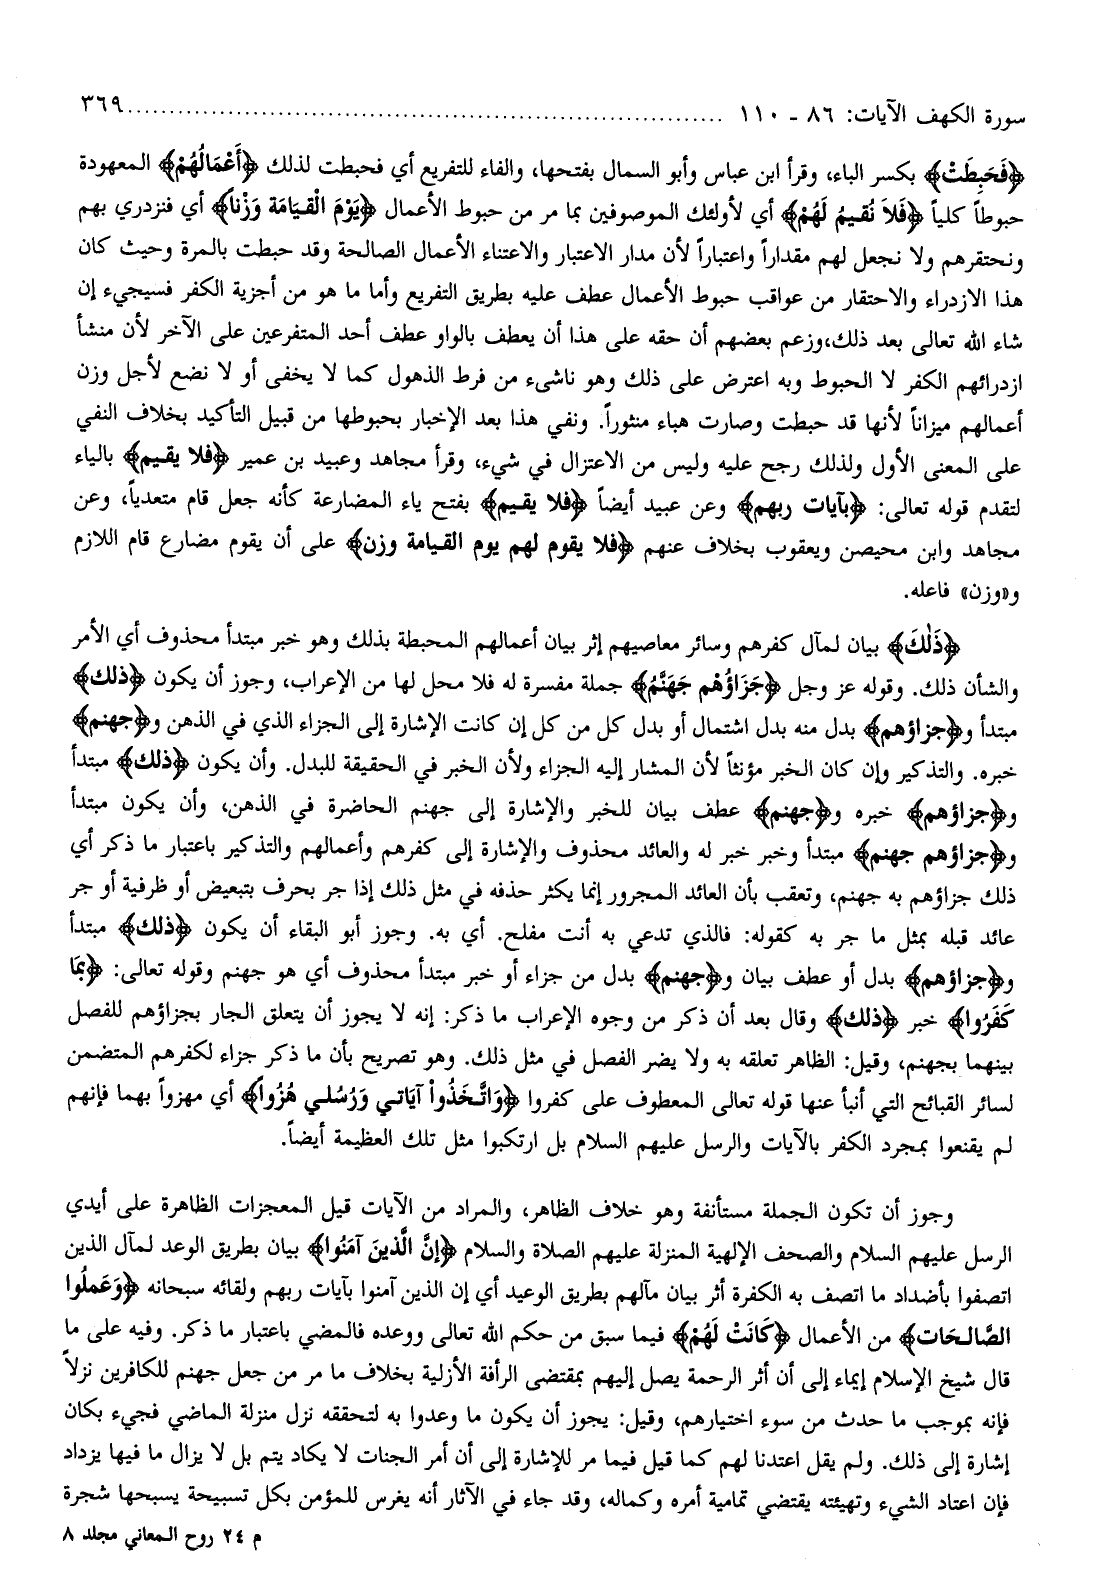 سورة الكهف الآيات: ٨٦ - ١١٠ ........................................................................ ٣٦٩
﴿فَحَبِطَتْ﴾ بكسر الباء، وقرأ ابن عباس وأبو السمال بفتحها، والفاء للتفريع أي فحبطت لذلك ﴿أَعْمَالُهُمْ﴾ المعهودة
حبوطاً كلياً ﴿فَلاَ نُقيمُ لَهُمْ﴾ أي لأولئك الموصوفين بما مر من حبوط الأعمال ﴿يَوْمَ الْقيَامَة وَزْناً﴾ أي فنزدري بهم
ونحتقرهم ولا نجعل لهم مقداراً واعتباراً لأن مدار الاعتبار والاعتناء الأعمال الصالحة وقد حبطت بالمرة وحيث كان
هذا الازدراء والاحتقار من عواقب حبوط الأعمال عطف عليه بطريق التفريع وأما ما هو من أجزية الكفر فسيجيء إن
شاء الله تعالى بعد ذلك،وزعم بعضهم أن حقه على هذا أن يعطف بالواو عطف أحد المتفرعين على الآخر لأن منشأ
ازدرائهم الكفر لا الحبوط وبه اعترض على ذلك وهو ناشىء من فرط الذهول كما لا يخفى أو لا نضع لأجل وزن
أعمالهم ميزاناً لأنها قد حبطت وصارت هباء منثوراً. ونفي هذا بعد الإخبار بحبوطها من قبيل التأكيد بخلاف النفي
على المعنى الأول ولذلك رجح عليه وليس من الاعتزال في شيء، وقرأ مجاهد وعبيد بن عمير ﴿فلا يقيم﴾ بالياء
لتقدم قوله تعالى: ﴿بآيات ربهم﴾ وعن عبيد أيضاً ﴿فلا يقيم﴾ بفتح ياء المضارعة كأنه جعل قام متعدياً، وعن
مجاهد وابن محيصن ويعقوب بخلاف عنهم ﴿فلا يقوم لهم يوم القيامة وزن﴾ على أن يقوم مضارع قام اللازم
و«وزن» فاعله.
﴿ذَلكَ﴾ بيان لمآل كفرهم وسائر معاصيهم إثر بيان أعمالهم المحبطة بذلك وهو خبر مبتدأ محذوف أي الأمر
والشأن ذلك. وقوله عز وجل ﴿جَزَاؤُهْم جَهَنَّمُ﴾ جملة مفسرة له فلا محل لها من الإعراب، وجوز أن يكون ﴿ذلك﴾
مبتدأ و﴿جزاؤهم﴾ بدل منه بدل اشتمال أو بدل كل من كل إن كانت الإشارة إلى الجزاء الذي في الذهن و﴿جهنم﴾
خبره. والتذكير وإن كان الخبر مؤنثاً لأن المشار إليه الجزاء ولأن الخبر في الحقيقة للبدل. وأن يكون ﴿ذلك﴾ مبتدأ
و﴿جزاؤهم﴾ خبره و﴿جهنم﴾ عطف بيان للخبر والإشارة إلى جهنم الحاضرة في الذهن، وأن يكون مبتدأ
و﴿جزاؤهم جهنم﴾ مبتدأ وخبر خبر له والعائد محذوف والإشارة إلى كفرهم وأعمالهم والتذكير باعتبار ما ذكر أي
ذلك جزاؤهم به جهنم، وتعقب بأن العائد المجرور إنما يكثر حذفه في مثل ذلك إذا جر بحرف بتبعيض أو ظرفية أو جر
عائد قبله بمثل ما جر به كقوله: فالذي تدعي به أنت مفلح. أي به. وجوز أبو البقاء أن يكون ﴿ذلك﴾ مبتدأ
و﴿جزاؤهم﴾ بدل أو عطف بيان و﴿جهنم﴾ بدل من جزاء أو خبر مبتدأ محذوف أي هو جهنم وقوله تعالى: ﴿بمَا
كَفَرُوا﴾ خبر ﴿ذلك﴾ وقال بعد أن ذكر من وجوه الإعراب ما ذكر: إنه لا يجوز أن يتعلق الجار بجزاؤهم للفصل
بينهما بجهنم، وقيل: الظاهر تعلقه به ولا يضر الفصل في مثل ذلك. وهو تصريح بأن ما ذكر جزاء لكفرهم المتضمن
لسائر القبائح التي أنبأ عنها قوله تعالى المعطوف على كفروا ﴿وَاتَّخَذُواْ آيَاتي وَرُسُلي هُزُواً﴾ أي مهزواً بهما فإنهم
لم يقنعوا بمجرد الكفر بالآيات والرسل عليهم السلام بل ارتكبوا مثل تلك العظيمة أيضاً.
وجوز أن تكون الجملة مستأنفة وهو خلاف الظاهر، والمراد من الآيات قيل المعجزات الظاهرة على أيدي
الرسل عليهم السلام والصحف الإلهية المنزلة عليهم الصلاة والسلام ﴿إنَّ الَّذينَ آمَنُوا﴾ بيان بطريق الوعد لمآل الذين
اتصفوا بأضداد ما اتصف به الكفرة أثر بيان مآلهم بطريق الوعيد أي إن الذين آمنوا بآيات ربهم ولقائه سبحانه ﴿وَعَملُوا
الصَّالحَات﴾ من الأعمال ﴿كَانَتْ لَهُمْ﴾ فيما سبق من حكم الله تعالى ووعده فالمضي باعتبار ما ذكر. وفيه على ما
قال شيخ الإسلام إيماء إلى أن أثر الرحمة يصل إليهم بمقتضى الرأفة الأزلية بخلاف ما مر من جعل جهنم للكافرين نزلاً
فإنه بموجب ما حدث من سوء اختيارهم، وقيل: يجوز أن يكون ما وعدوا به لتحققه نزل منزلة الماضي فجيء بكان
إشارة إلى ذلك. ولم يقل اعتدنا لهم كما قيل فيما مر للإشارة إلى أن أمر الجنات لا يكاد يتم بل لا يزال ما فيها يزداد
فإن اعتاد الشيء وتهيئته يقتضي تمامية أمره وكماله، وقد جاء في الآثار أنه يغرس للمؤمن بكل تسبيحة يسبحها شجرة
م ٢٤ روح المعاني مجلد ٨